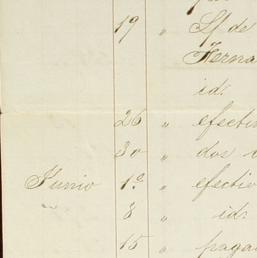 19 " Lf de
Herna
id.
26 " efectiv
30 " dos
Junio 1º " efectiv
8 " id.
15 " paga